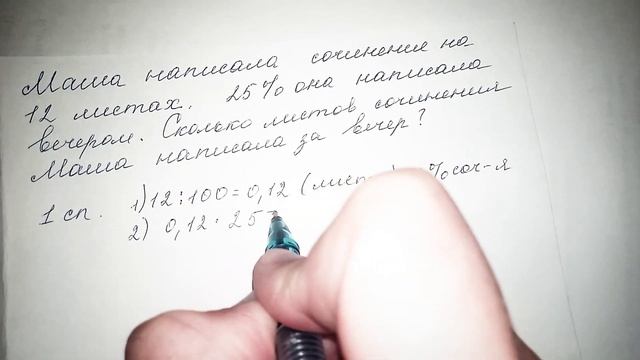 Маша написала сочинение на
12 листах. 25% она написала
вечером. Сколько листов сочинения
Маша написала за вечер?
1 сп. 1) 12:100=0,12 % соч-я
2) 0,12 · 25